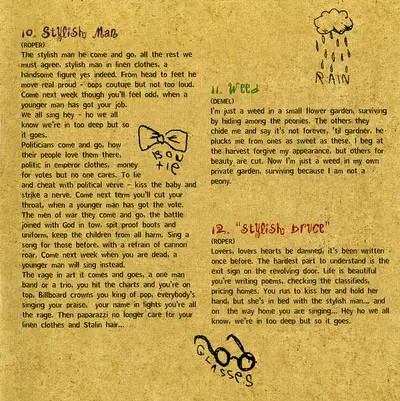 10. Stylish Man
(ROPER)
The stylish man he come and go, all the rest we
must agree, stylish man in linen clothes, a
handsome figure yes indeed. From head to feet he
move real proud - oops couture but not too loud.
Come next week though you'll feel odd, when a
younger man has got your job.
We all sing hey - ho we all
know we're in too deep but so
it goes.
Politicians come and go, how
their people love them there,
politic in emperor clothes, money
for votes but no one cares. To lie
and cheat with political verve - kiss the baby and
strike a nerve. Come next term you'll cut your
throat, when a younger man has got the vote.
The men of war they come and go, the battle
joined with God in tow, spit proof boots and
uniform, keep the children from all harm. Sing a
song for those before, with a refrain of cannon
roar. Come next week when you are dead, a
younger man will sing instead.
The rage in art it comes and goes, a one man
band or a trio, you hit the charts and you're on
top. Billboard crowns you king of pop, everybody's
singing your praise, your name in lights you're all
the rage. Then paparazzi no longer care for your
linen clothes and Stalin hair...
BOW
tie
RAIN
11. Weed
(DEMEL)
I'm just a weed in a small flower garden, surviving
by hiding among the peonies. The others they
chide me and say it's not forever, 'til gardner, he
plucks me from ones as sweet as these, I beg at
the harvest forgive my appearance, but others for
beauty are cut. Now I'm just a weed in my own
private garden, surviving because I am not a
peony.
12. "Stylish bruce"
(ROPER)
Lovers, lovers hearts be damned, it's been written -
once before. The hardest part to understand is the
exit sign on the revolving door. Life is beautiful
you're writing poems, checking the classifieds,
pricing homes. You run to kiss her and hold her
hand, but she's in bed with the stylish man... and
on the way home you are singing... Hey ho we all
know, we're in too deep but so it goes.
GLASSES